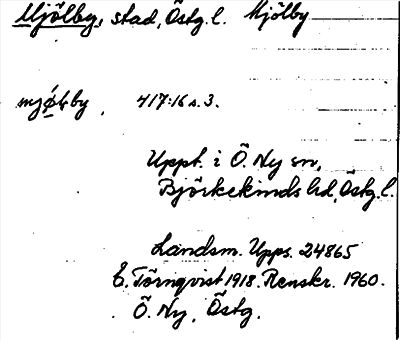 Mjölby, stad, Östg. l. Mjölby
417:16 s. 3.
Uppt. i Ö. Ny sn,
Björkekinds hd, Östg. l.
Landsm. Upps. 24865
E. Törnqvist, 1918. Renskr. 1960.
Ö. Ny, Östg.